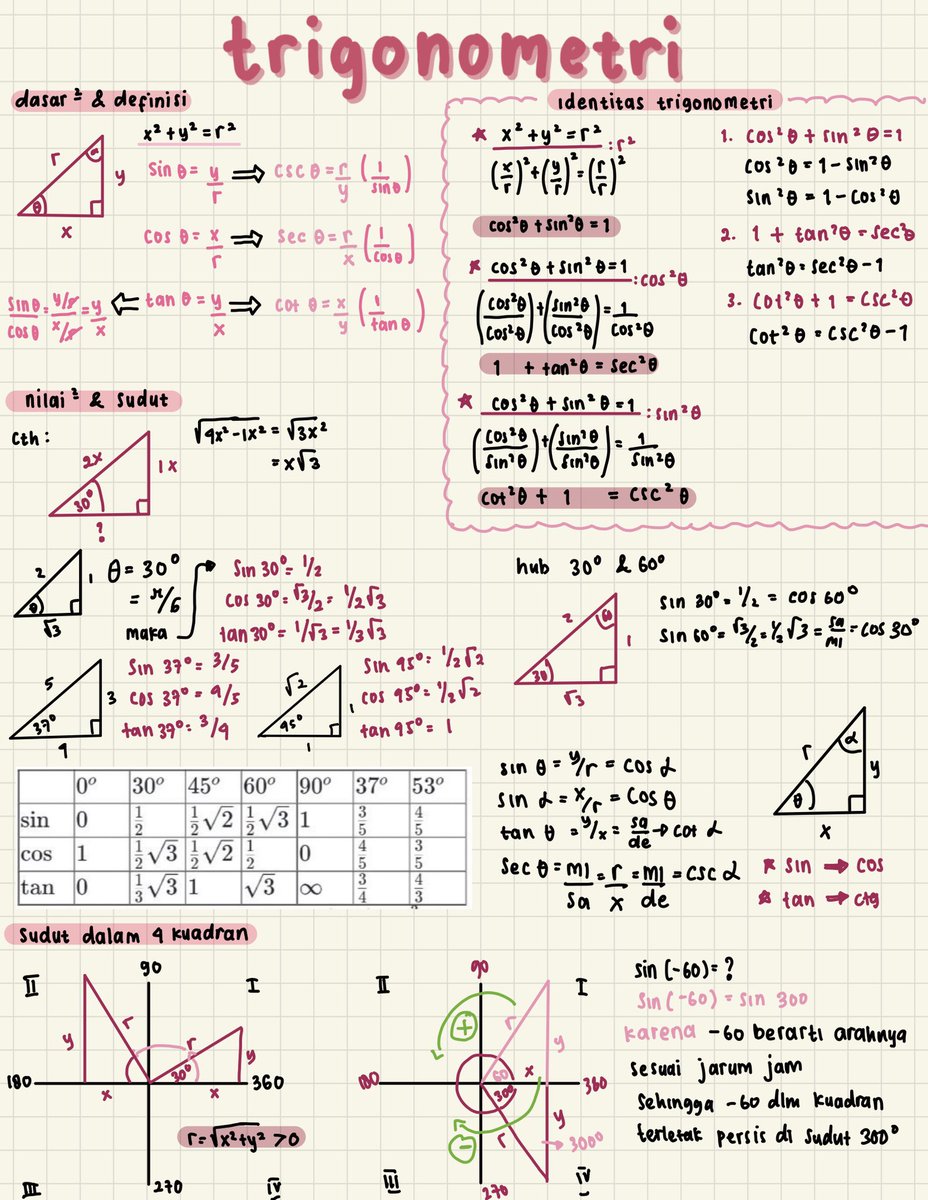 trigonometri
dasar² & definisi
x² + y² = r²
r
α
y
θ
x
sin θ = y/r ⇒ csc θ = r/y (1/sin θ)
cos θ = x/r ⇒ sec θ = r/x (1/cos θ)
sin θ/cos θ = y/r / x/r = y/x ⇐ tan θ = y/x ⇒ cot θ = x/y (1/tan θ)
identitas trigonometri
★ x² + y² = r² : r²
(x/r)² + (y/r)² = (r/r)²
cos²θ + sin²θ = 1
★ cos²θ + sin²θ = 1 : cos²θ
(cos²θ/cos²θ) + (sin²θ/cos²θ) = 1/cos²θ
1 + tan²θ = sec²θ
★ cos²θ + sin²θ = 1 : sin²θ
(cos²θ/sin²θ) + (sin²θ/sin²θ) = 1/sin²θ
cot²θ + 1 = csc²θ
1. cos²θ + sin²θ = 1
cos²θ = 1 - sin²θ
sin²θ = 1 - cos²θ
2. 1 + tan²θ = sec²θ
tan²θ = sec²θ - 1
3. cot²θ + 1 = csc²θ
cot²θ = csc²θ - 1
nilai² & sudut
cth :
2x
1x
30°
?
√4x² - 1x² = √3x²
= x√3
2
1
θ
√3
θ = 30°
= π/6
maka
sin 30° = 1/2
cos 30° = √3/2 = 1/2√3
tan 30° = 1/√3 = 1/3√3
5
3
37°
4
sin 37° = 3/5
cos 37° = 4/5
tan 37° = 3/4
√2
1
45°
1
sin 45° = 1/2√2
cos 45° = 1/2√2
tan 45° = 1
hub 30° & 60°
2
60
1
30
√3
sin 30° = 1/2 = cos 60°
sin 60° = √3/2 = 1/2√3 = sa/mi = cos 30°
0° 30° 45° 60° 90° 37° 53°
sin 0 1/2 1/2√2 1/2√3 1 3/5 4/5
cos 1 1/2√3 1/2√2 1/2 0 4/5 3/5
tan 0 1/3√3 1 √3 ∞ 3/4 4/3
sin θ = y/r = cos α
sin α = x/r = cos θ
tan θ = y/x = sa/de → cot α
sec θ = mi/sa = r/x = mi/de = csc α
r
α
y
θ
x
★ sin → cos
★ tan → ctg
sudut dalam 4 kuadran
90
II
I
y
r
r
y
30°
180
360
x
x
r = √x² + y² > 0
III
270
IV
90
II
I
+
r
y
60
x
180
360
300
y
−
r
300°
III
270
IV
sin (-60) = ?
sin (-60) = sin 300
karena -60 berarti arahnya
sesuai jarum jam
sehingga -60 dlm kuadran
terletak persis di sudut 300°